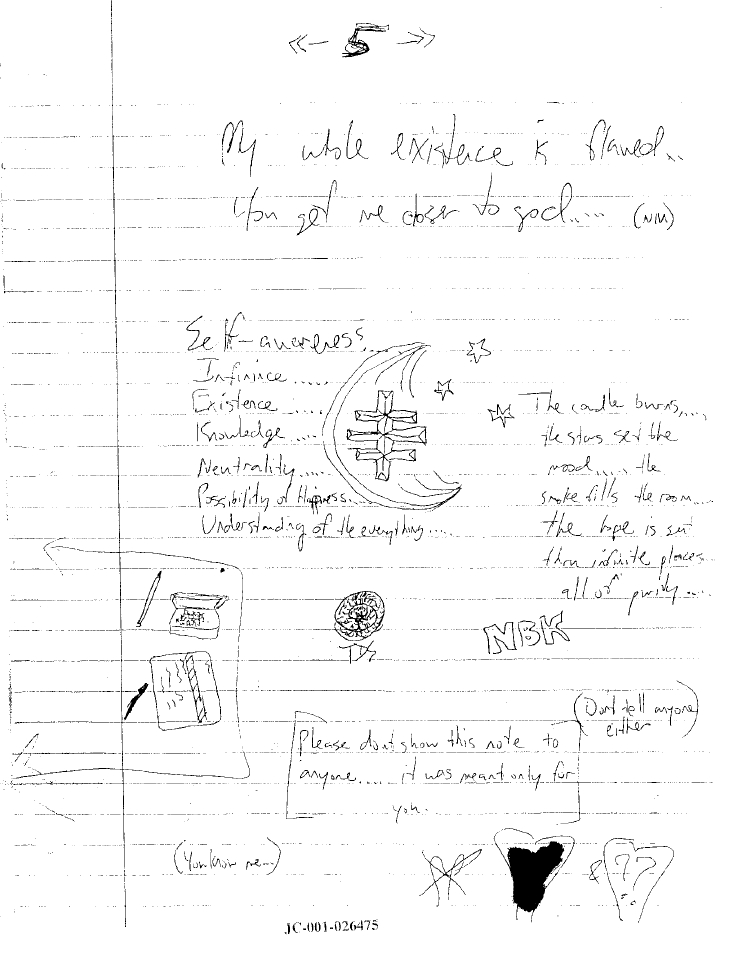 <- 5 ->
My whole existence is flawed..
You get me closer to god..... (NIN)
Self-awareness...
Infinince .....
Existence .....
Knowledge ....
Neutrality.....
Possibility of Happiness...
Understanding of the everything.....
The candle burns....,
the stars set the
mood..... the
smoke fills the room....
the hope is
than infinite places
all of purity....
NBK
(Don't tell anyone
either)
Please dont show this note to
anyone.... it was meant only for
you.
(You know me...)
&
??
JC-001-026475